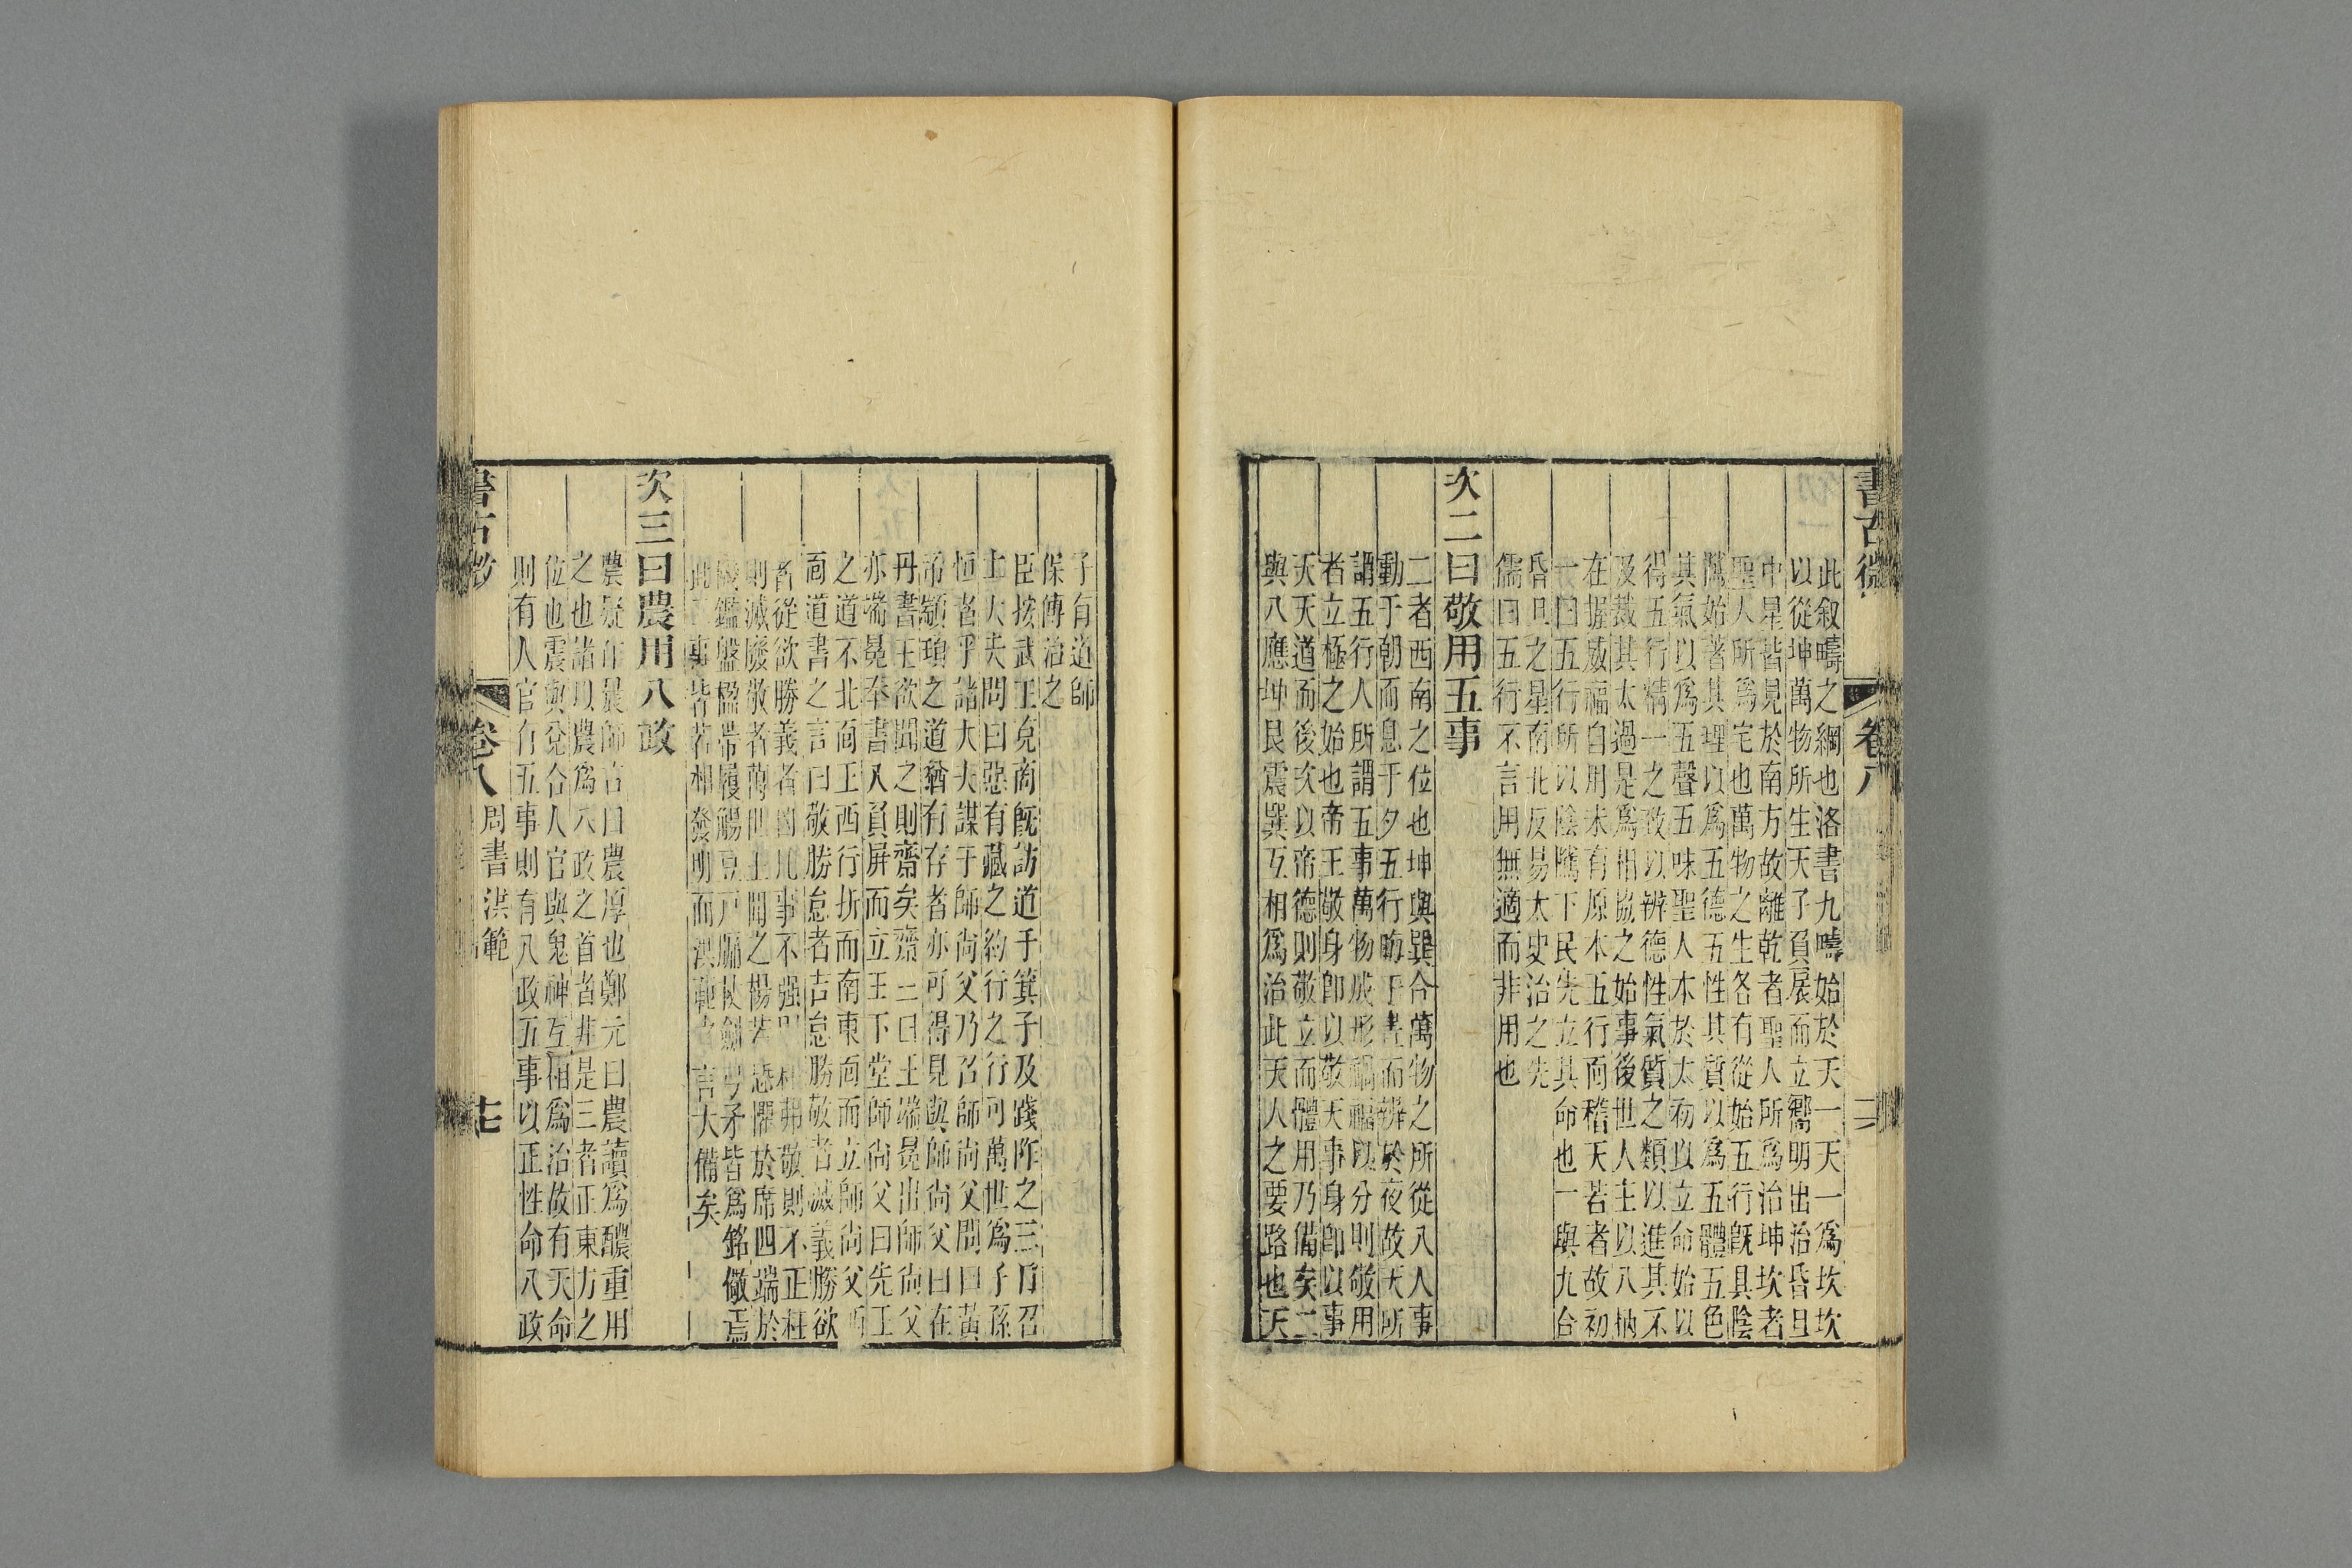 書古微
卷八
此敘疇之綱也洛書九疇始於天一天一爲坎坎
以從坤萬物所生天子負扆而立嚮明出治昏旦
中星皆見於南方故離乾者聖人所爲治坤坎者
聖人所爲宅也萬物之生各有從始五行旣具陰
隲始著其理以爲五德五性其質以爲五體五色
其氣以爲五聲五味聖人本於太初以立命始以
得五行精一之敎以辨德性氣質之類以進其不
及裁其太過是爲相協之始事後世人主以八柄
在握威福自用未有原本五行而稽天若者故初
一曰五行所以陰隲下民先立其命也一與九合
昏旦之星南北反易太史治之先
儒曰五行不言用無適而非用也
次二曰敬用五事
二者西南之位也坤與巽合萬物之所從八人事
動于朝而息于夕五行晦于晝而辨於夜故天所
謂五行人所謂五事萬物成形禍福以分則敬用
者立極之始也帝王敬身卽以敬天事身卽以事
天天道而後次以帝德則敬立而體用乃備矣二
與八應坤艮震巽互相爲治此天人之要路也天
子有道師
保傅治之
臣按武王克商旣訪道于箕子及踐阼之三月召
士大夫問曰惡有藏之約行之行可萬世爲子孫
恒者乎諸大夫謀于師尚父乃召師尚父問曰黃
帝顓頊之道猶有存者亦可得見與師尚父曰在
丹書王欲聞之則齋矣齋三日王端冕出師尚父
亦端冕奉書入負屏而立王下堂師尚父曰先王
之道不北面王西行折而南東面而立師尚父西
面道書之言曰敬勝怠者吉怠勝敬者滅義勝欲
者從欲勝義者凶凡事不强則枉弗敬則不正枉
則滅廢敬者萬世王聞之惕若恐懼於席四端於
鑑盤盥帶履觴豆戶牖杖劍弓矛皆爲銘儆焉
此二事皆若相發明而洪範 言大備矣
次三曰農用八政
農疑作晨師古曰農厚也鄭元曰農讀爲醲重用
之也諸以農爲八政之首者非是三者正東方之
位也震與兌合人官與鬼神互相爲治故有天命
則有人官有五事則有八政五事以正性命八政
書古微
卷八
周書洪範
七